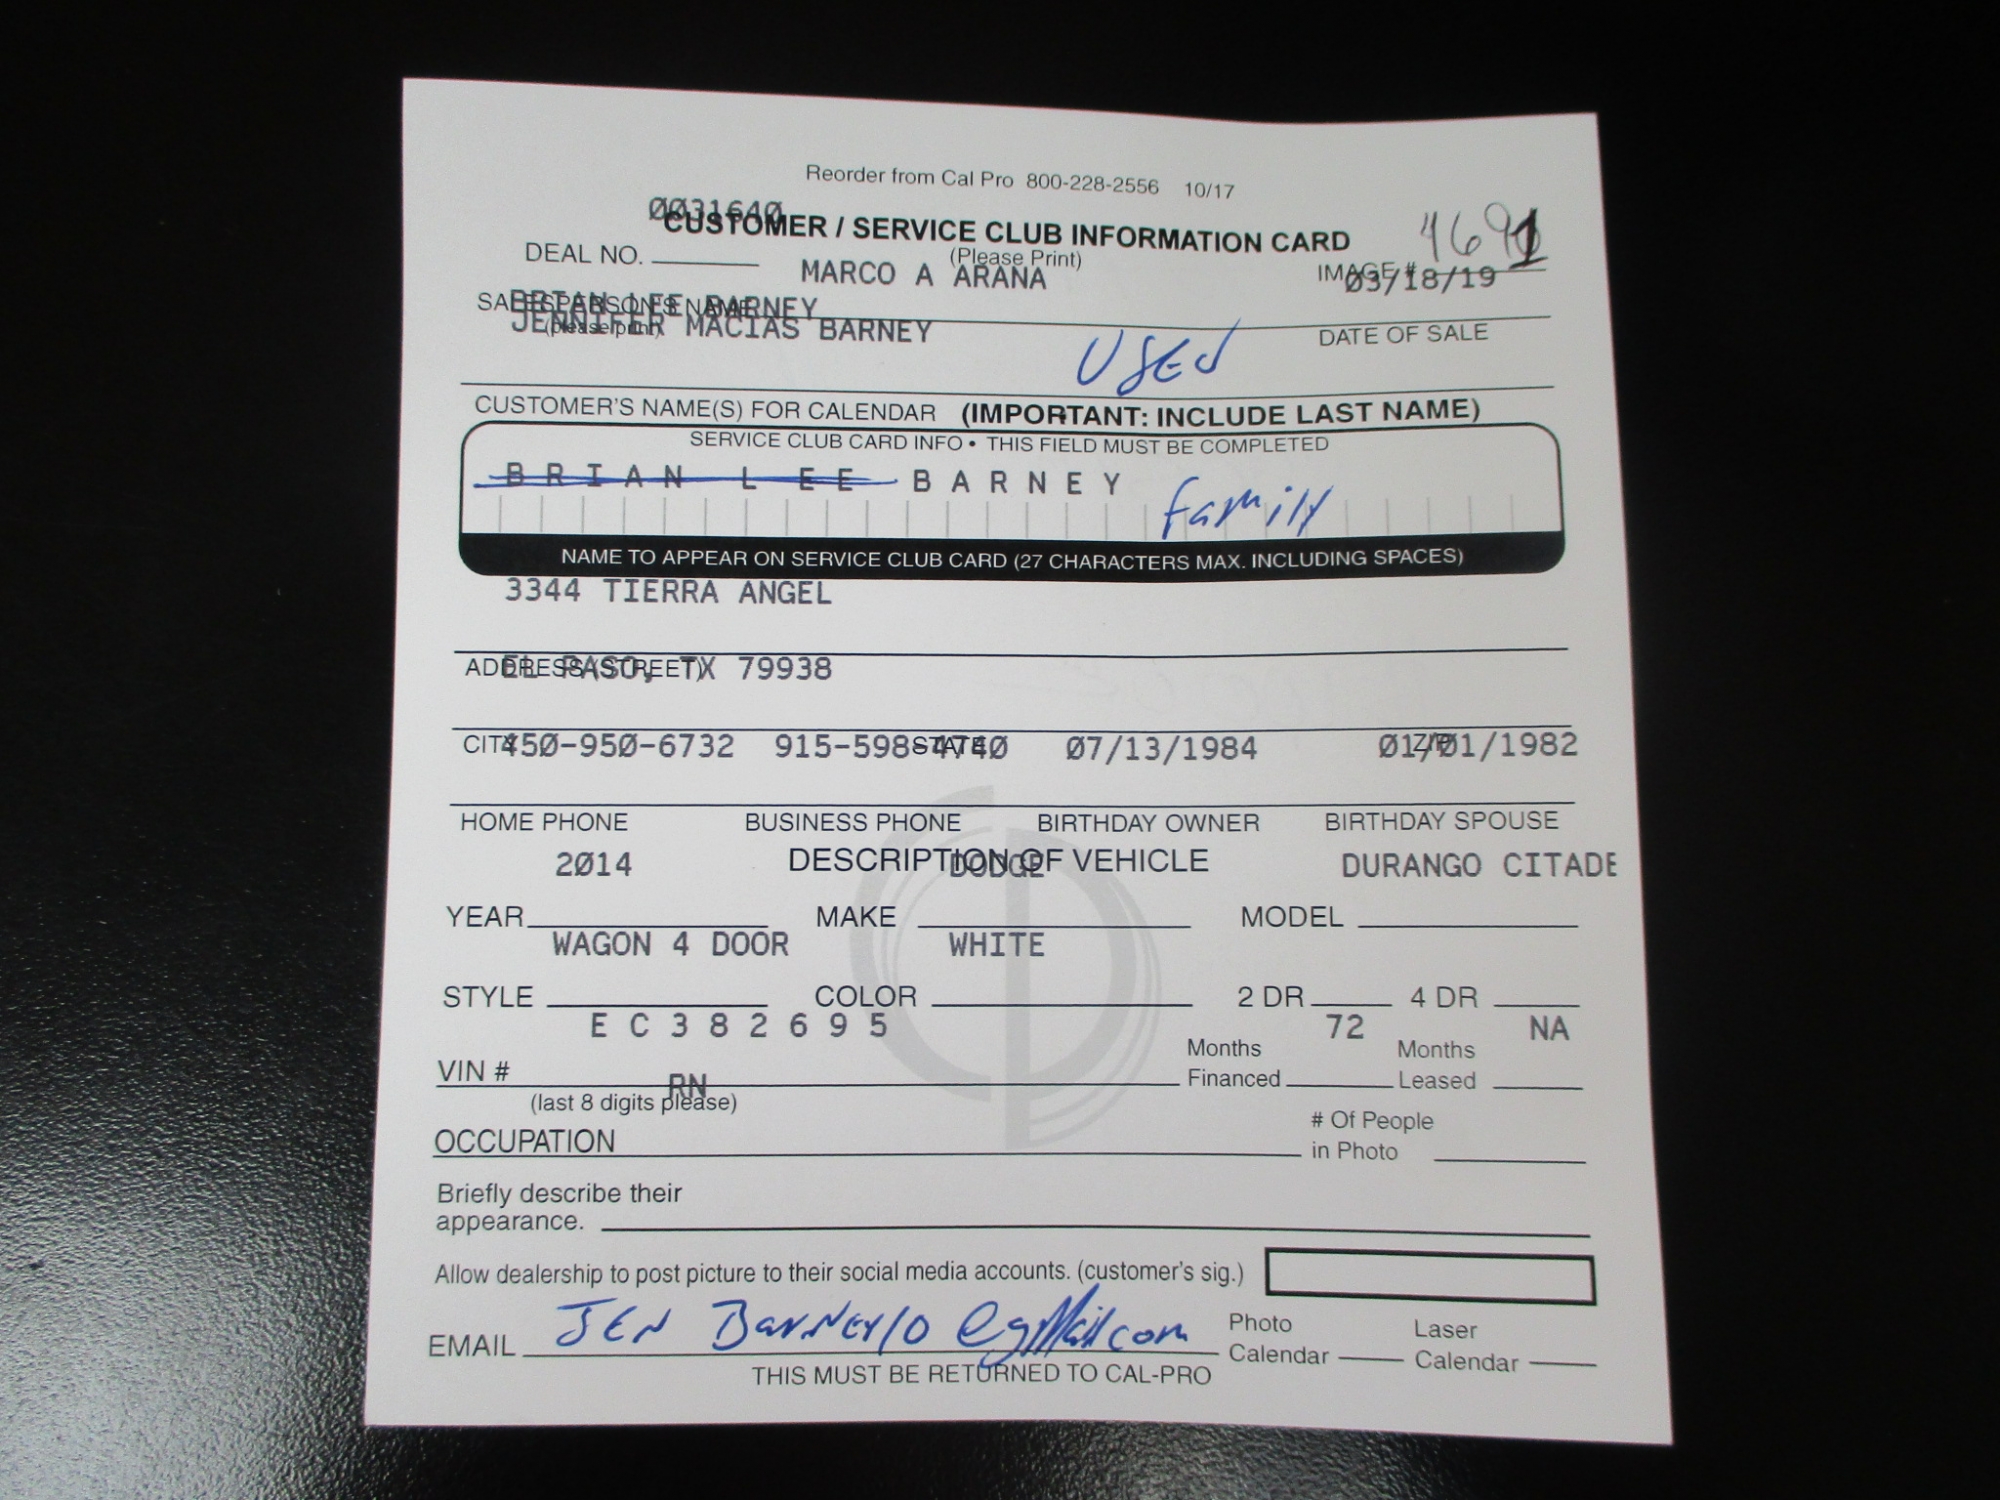 Reorder from Cal Pro 800-228-2556 10/17
0031640
CUSTOMER / SERVICE CLUB INFORMATION CARD
(Please Print)
DEAL NO.
MARCO A ARANA
IMAGE #
03/18/19
SALESPERSON'S NAME
(please print)
BRIAN LEE BARNEY
JENNIFER MACIAS BARNEY
USED
DATE OF SALE
CUSTOMER'S NAME(S) FOR CALENDAR (IMPORTANT: INCLUDE LAST NAME)
SERVICE CLUB CARD INFO • THIS FIELD MUST BE COMPLETED
BRIAN LEE BARNEY Family
NAME TO APPEAR ON SERVICE CLUB CARD (27 CHARACTERS MAX. INCLUDING SPACES)
3344 TIERRA ANGEL
ADDRESS (STREET)
EL PASO, TX 79938
CITY STATE ZIP
450-950-6732 915-598-4740 07/13/1984 01/01/1982
HOME PHONE BUSINESS PHONE BIRTHDAY OWNER BIRTHDAY SPOUSE
DESCRIPTION OF VEHICLE
2014 DODGE DURANGO CITADE
YEAR MAKE MODEL
WAGON 4 DOOR WHITE
STYLE COLOR 2 DR 4 DR
E C 3 8 2 6 9 5 72 NA
VIN # Months Financed Months Leased
(last 8 digits please)
RN
OCCUPATION # Of People in Photo
Briefly describe their
appearance.
Allow dealership to post picture to their social media accounts. (customer's sig.)
EMAIL JEN Barney10@gmail.com Photo Calendar Laser Calendar
THIS MUST BE RETURNED TO CAL-PRO